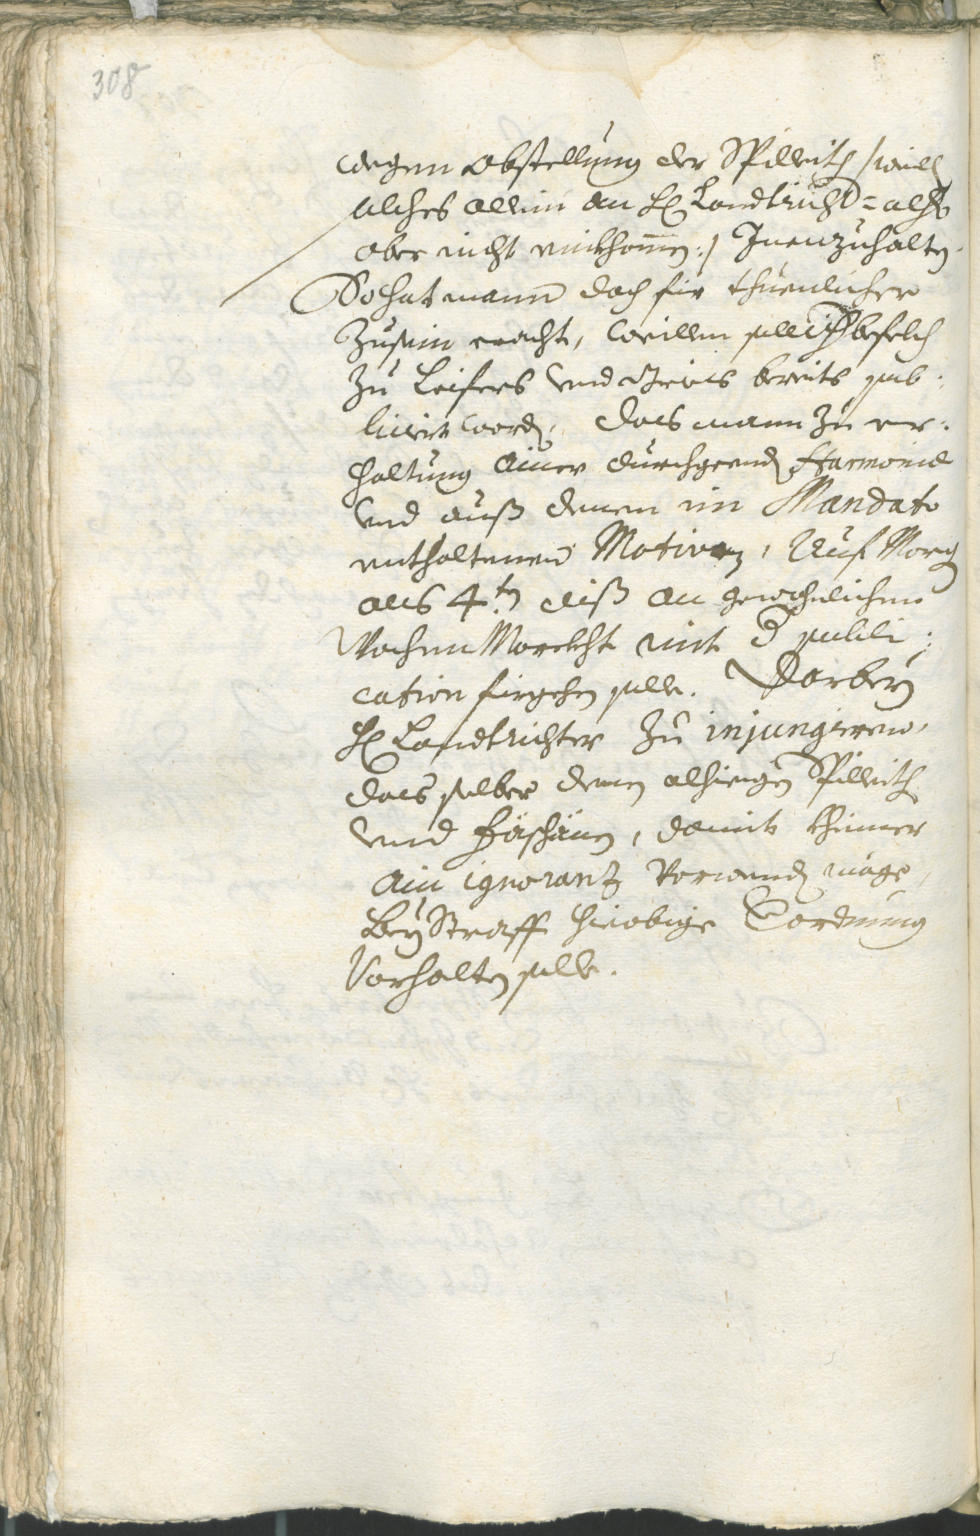 308
wegen Abstellung der Spilleith /weill
solches allein an H: Landtricht= alhie
aber nicht einkhom̄en:/ Innenzuhalten.
So hat mann doch für thuenlicher
Zusein eracht, weillen solch befelch
Zu Leifers vnd Gries bereits pub:
liciert word, dass mann Zu er:
haltung ainer durchgeend Harmonie
vnd auß denen im Mandato
enthaltenen Motiven, Auf Morg
als 4:ten diß an gewohnlichen
Wochen Marckht mit d publi:
cation firgehen solle. Darbey
H: Landtrichter Zu injungieren,
dass selber denen alhiesigen Spilleith
vnd , damit khainer
ain ignorantz Vorwend möge,
bey Straff hieobige Verordnung
Vorhalten solle.